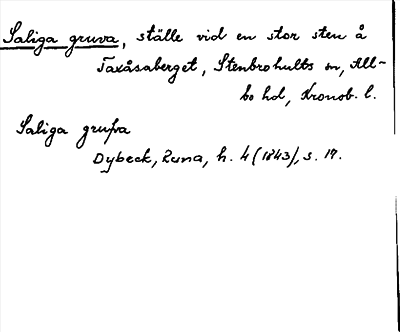 Saliga gruva, ställe vid en stor sten å
Taxåsaberget, Stenbrohults sn, All-
bo hd, Kronob. l.
Saliga grufva
Dybeck, Runa, h. 4 (1843), s. 17.